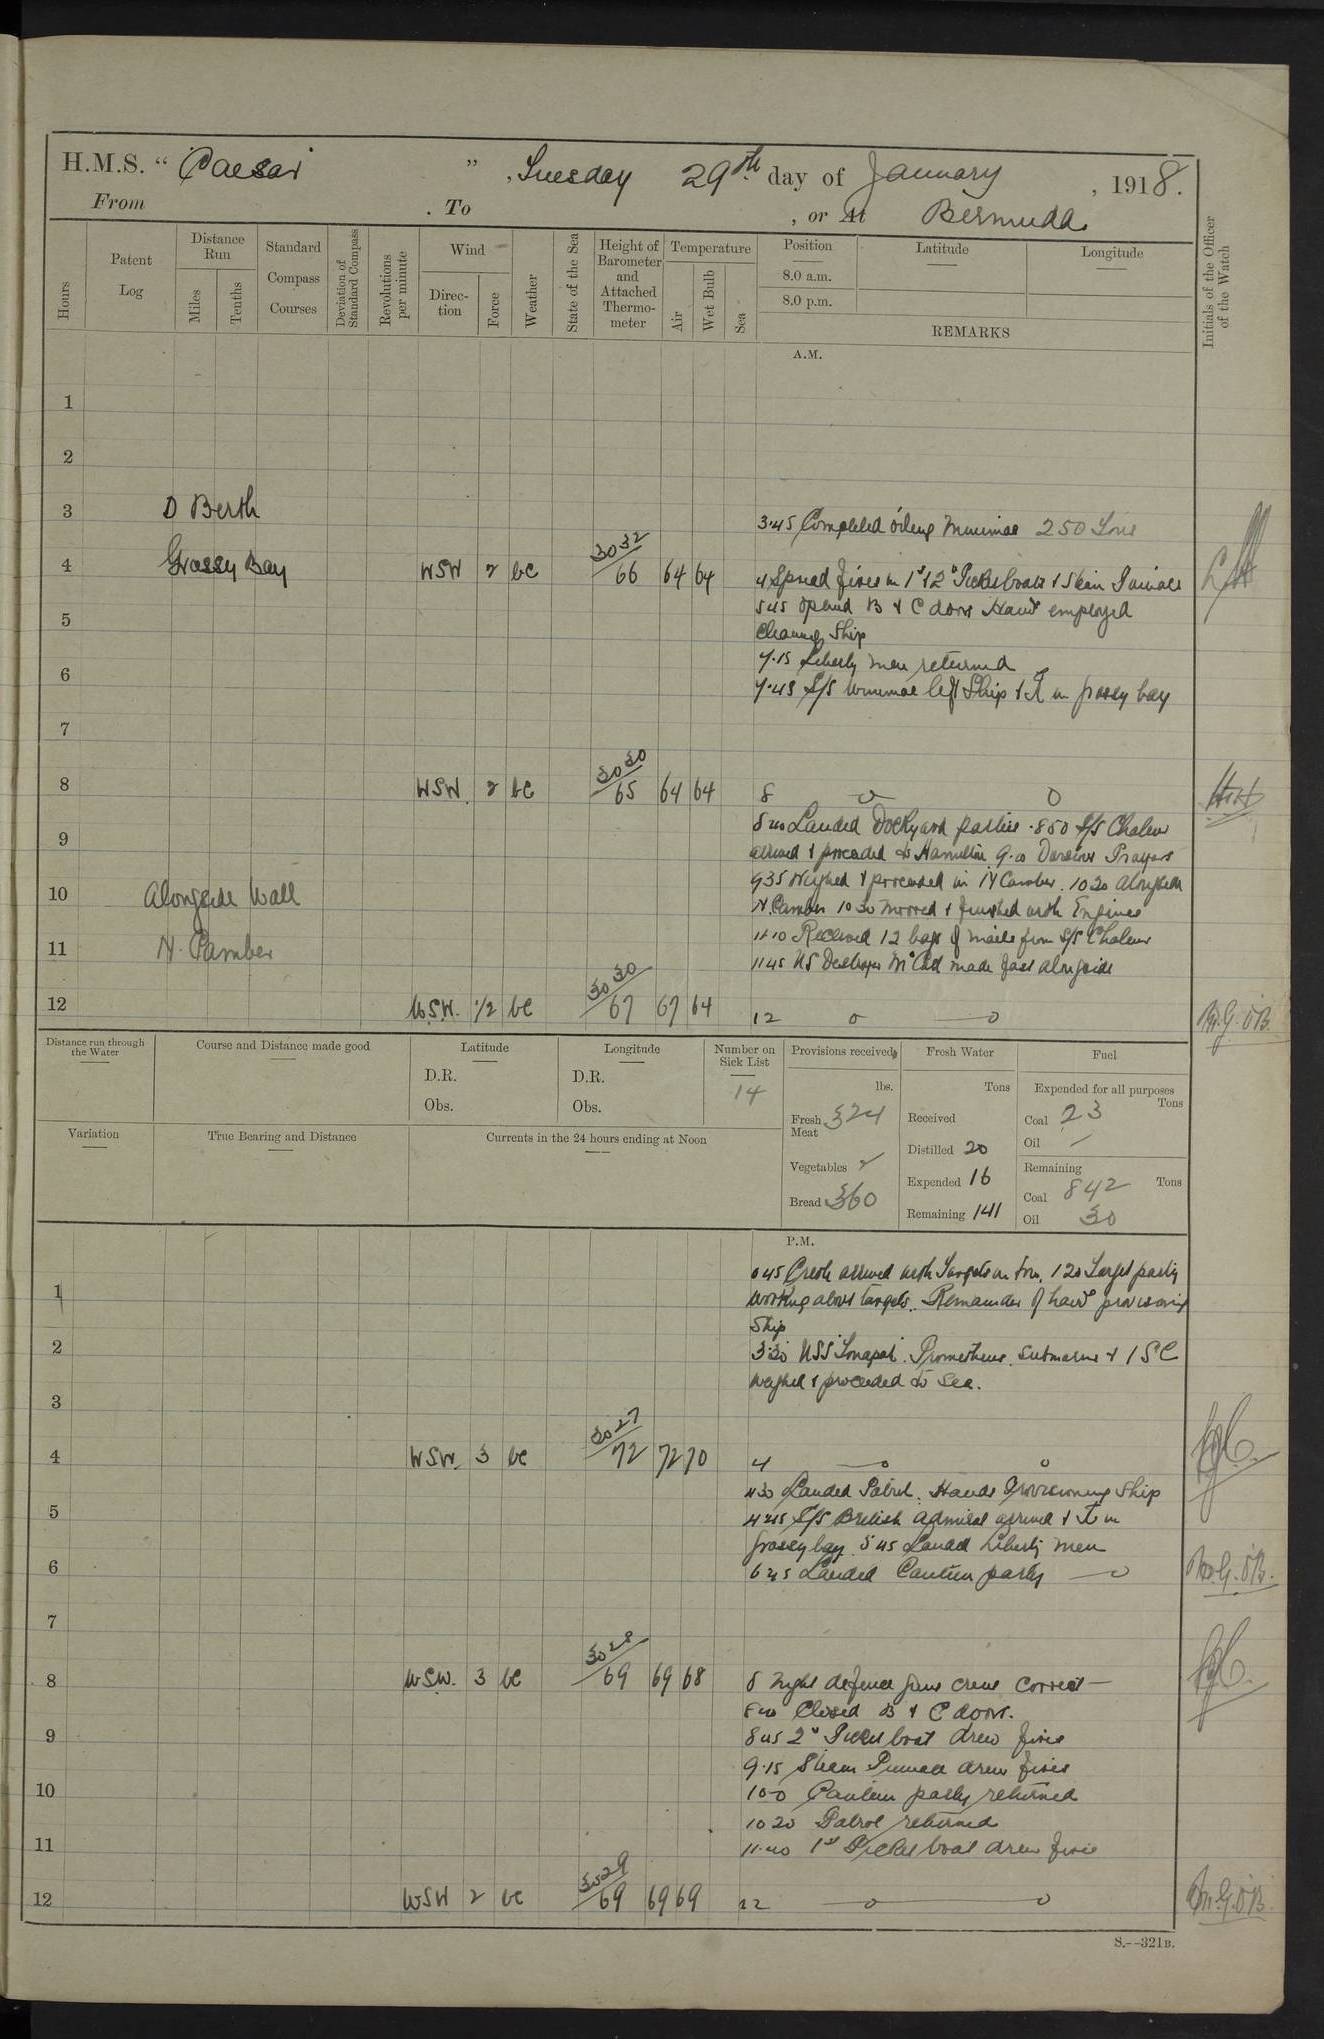 H.M.S. “ Caesar ”, Tuesday 29th day of January, 1918.
From . To , or At Bermuda
Hours
Patent Log
Distance Run
Miles
Tenths
Standard Compass Courses
Deviation of Standard Compass
Revolutions per minute
Wind
Direc- tion
Force
Weather
State of the Sea
Height of Barometer and Attached Thermo- meter
Temperature
Air
Wet Bulb
Sea
Position
8.0 a.m.
8.0 p.m.
Latitude
Longitude
REMARKS
Initials of the Officer of the Watch
A.M.
1
2
3 D Berth
3.45 Completed oiling 250 Tons
4 Grassy Bay WSW 2 bc 3032/66 64 64
4 Spread fires in 1st & 2nd Picket boats & Steam Pinnace
5 5.45 opened B & C doors Hands employed
cleaning Ship
7.15 Liberty men returned
6
7.45 S/S left Ship & in grassy bay
7
8 WSW. 2 bc 3030/65 64 64 8
8.20 Landed Dockyard parties . 8.50 S/S Chaleur
9 arrived & proceeded to Hamilton 9.10 Divisions Prayers
9.35 Weighed & proceeded in N Camber. 10.20 alongside
10 Alongside Wall
N. Camber 10.30 moored & finished with Engines
11.10 Received 12 bags of mails from S/S Chaleur
11 N. Camber
11.45 US Destroyer made fast alongside
12 W.S.W. 1/2 bc 3030/67 67 64 12 M.G.O'B.
Distance run through the Water
Course and Distance made good
Latitude
D.R.
Obs.
Longitude
D.R.
Obs.
Number on Sick List
14
Provisions received
lbs.
Fresh Meat 324
Vegetables
Bread 360
Fresh Water
Tons
Received
Distilled 20
Expended 16
Remaining 141
Fuel
Expended for all purposes
Tons
Coal 23
Oil /
Remaining
Tons
Coal 842
Oil 30
Variation
True Bearing and Distance
Currents in the 24 hours ending at Noon
P.M.
0.45 arrived with Targets in tow. 1.20 Target party
1 working about targets. Remainder of hands provisioning
Ship
2 3.30 USS Tonapah. Prometheus. Submarine & 1 SC
weighed & proceeded to Sea.
3
4 WSW. 3 bc 3027/72 72 70 4
4.30 Landed Patrol. Hands Provisioning Ship
5 4.45 S/S British Admiral arrived & in
grassy bay. 5.45 Landed Liberty men
6 6.45 Landed Canteen party M.G.O'B.
7
8 WSW. 3 bc 3028/69 69 68 8 Night defence guns crews correct
8.20 Closed B & C doors.
9 8.45 2nd Picket boat drew fires
9.15 Steam Pinnace drew fires
10 10.0 Canteen party returned
10.20 Patrol returned
11 11.40 1st Picket boat drew fires
12 WSW 2 bc 3029/69 69 69 12 M.G.O'B
S.--321B.